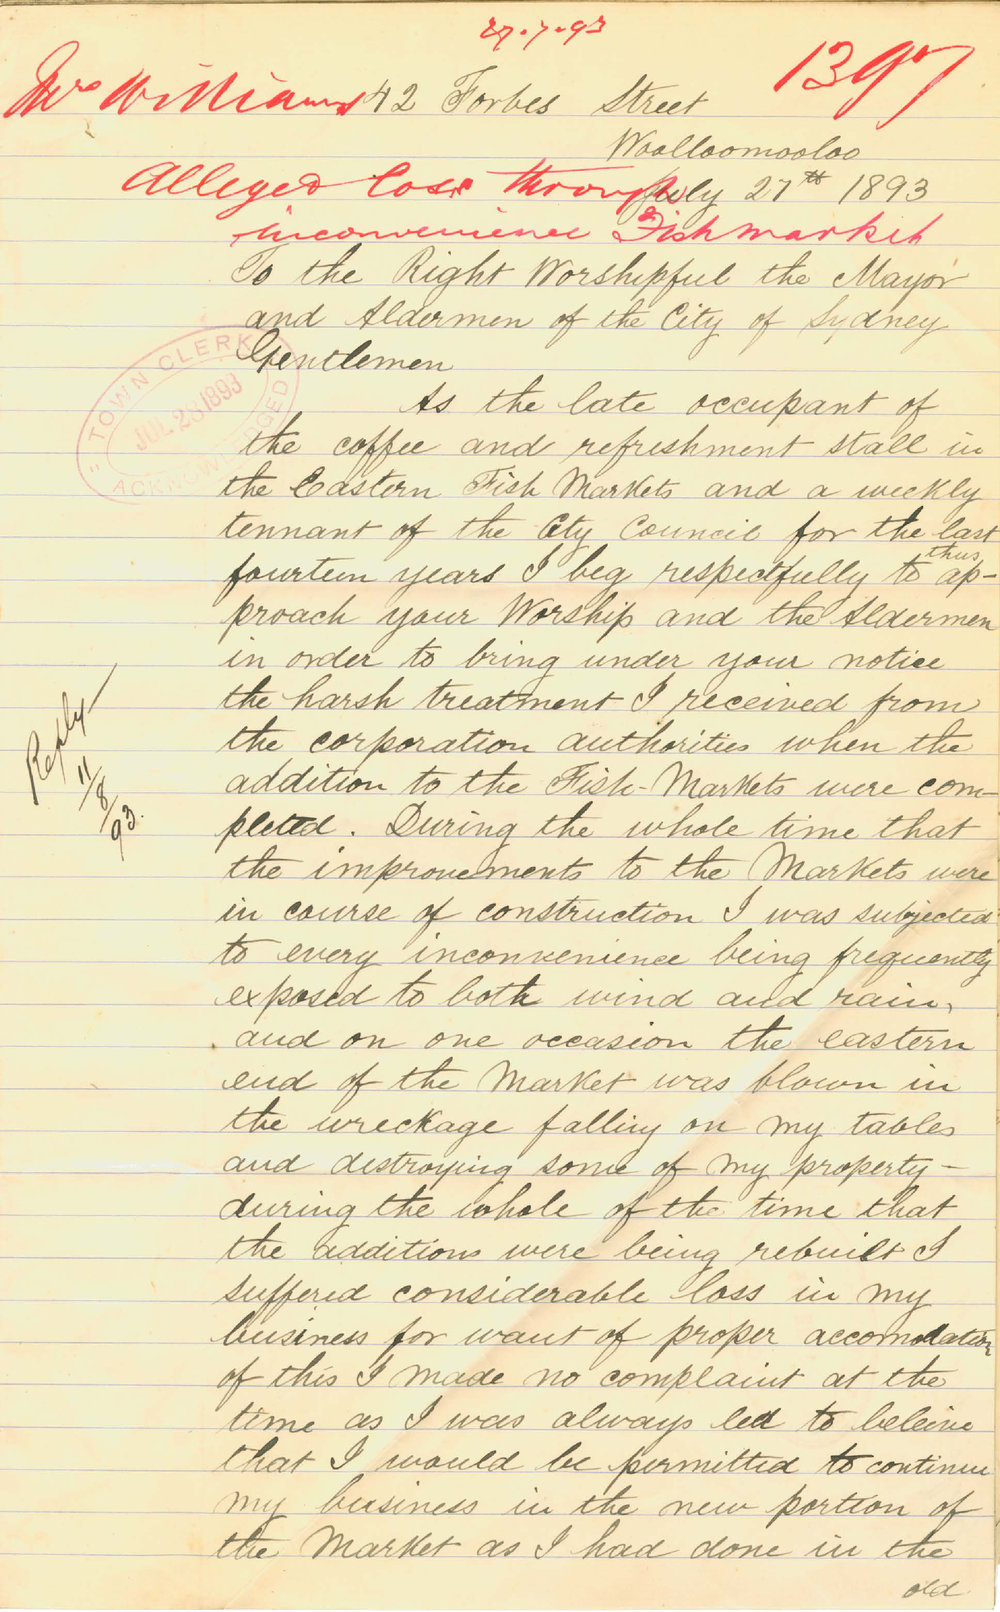 27.7.93
1397
Mrs Williams
42 Forbes Street
Woolloomooloo
July 27th 1893
Alleged loss through
inconvenience Fishmarket
To the Right Worshipful the Mayor
and Aldermen of the City of Sydney
Gentlemen
TOWN CLERK
JUL 28 1893
ACKNOWLEDGED
As the late occupant of
the coffee and refreshment stall in
the Eastern Fish Markets and a weekly
tennant of the City Council for the last
fourteen years I beg respectfully to thus ap-
proach your Worship and the Aldermen
in order to bring under your notice
the harsh treatment I received from
the corporation authorities when the
addition to the Fish-Markets were com-
pleted. During the whole time that
the improvements to the Markets were
in course of construction I was subjected
to every inconvenience being frequently
exposed to both wind and rain,
and on one occasion the eastern
end of the Market was blown in
the wreckage falling on my tables
and destroying some of my property—
during the whole of the time that
the additions were being rebuilt I
suffered considerable loss in my
business for want of proper accomodation
of this I made no complaint at the
time as I was always led to beleive
that I would be permitted to continue
my business in the new portion of
the Market as I had done in the
old
Reply
11/8/93.